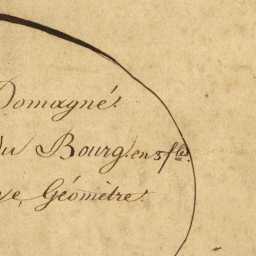 Domagné.
du Bourg en 5 f.les
Géomètre.